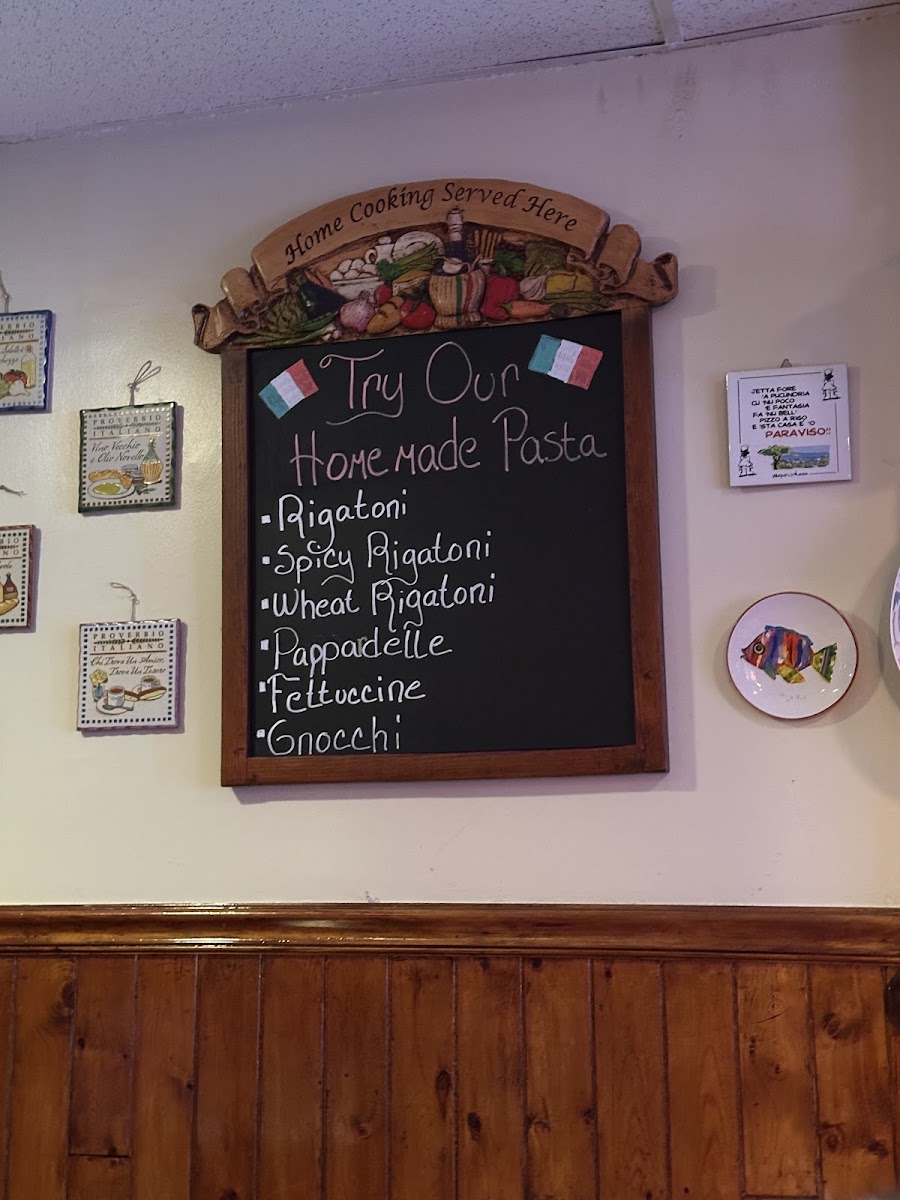 Home Cooking Served Here
Try Our
Homemade Pasta
Rigatoni
Spicy Rigatoni
Wheat Rigatoni
Pappardelle
Fettuccine
Gnocchi
PROVERBIO
ITALIANO
Vino Vecchio
e Olio Novello
PROVERBIO
ITALIANO
Chi Trova Un Amico,
Trova Un Tesoro
JETTA FORE
'A PUCUNDRIA
CU 'NU POCO
'E FANTASIA
FA 'NU BELL'
PIZZO A RISO
E 'STA CASA E' 'O
PARAVISO!!